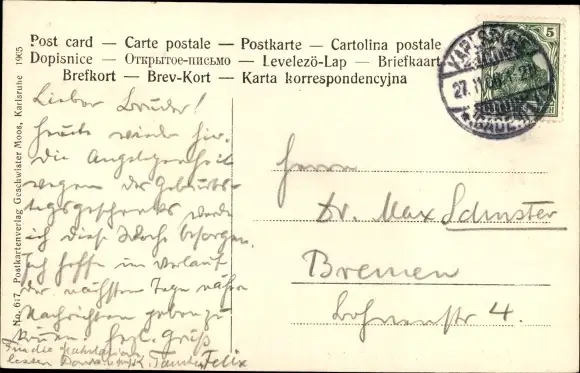 Post card — Carte postale — Postkarte — Cartolina postale
Dopisnice — Открытое-письмо — Levelező-Lap — Briefkaart
Brefkort — Brev-Kort — Karta korrespondencyjna
No. 617. Postkartenverlag Geschwister Moos, Karlsruhe 1905
KARLSRUHE
27.11.06
BADEN
5
Lieber Bruder!
Heute wieder hier.
Die Angelegenheit
wegen des Geburts-
tagsgeschenks werde
ich diese Woche besorgen.
Ich hoffe im Verlauf
der nächsten Tage nähere
Nachrichten geben zu
können. Herzl. Gruß
Felix
Für die
Herrn
Dr. Max Schuster
Bremen
4.